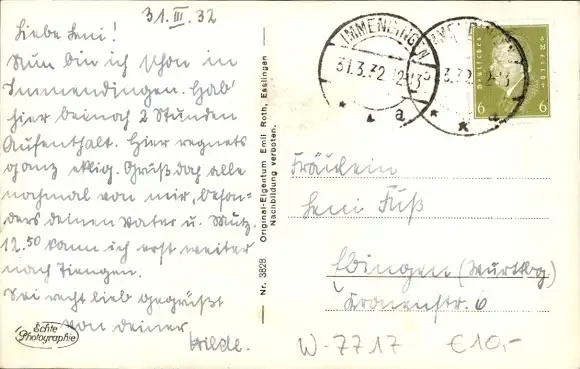 31. III. 32
Liebe Leni!
Nun bin ich schon in
Immendingen. Hab'
hier beinah 2 Stunden
Aufenthalt. Hier regnets
ganz eklig. Grüß doch alle
nochmal von mir, beson-
ders deinen Vater u. Mutz.
12.50 kann ich erst weiter
nach Tiengen.
Sei recht lieb gegrüßt
von deiner
Hilde.
Echte
Photographie
Nr. 3828 Original-Eigentum Emil Roth, Esslingen
Nachbildung verboten.
IMMENDINGEN
31.3.32 12-13
a
3.32 12-13
DEUTSCHES REICH
6 6
Fräulein
Leni Fuß
Ebingen (Württbg)
Kronenstr. 6
W-7717 €10,-